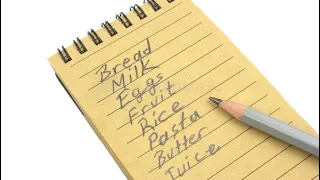 Bread
Milk
Eggs
Fruit
Rice
Pasta
Butter
Juice